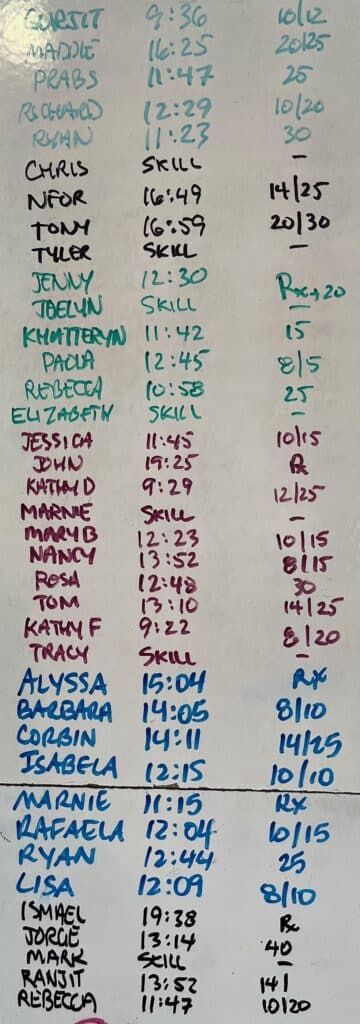 GURJIT 9:36 10/12
MADDIE 16:25 20/25
PRABS 11:47 25
RICHARD 12:29 10/20
RYAN 11:23 30
CHRIS SKILL –
NFOR 16:49 14/25
TONY 16:59 20/30
TYLER SKILL –
JENNY 12:30 Rx+20
JOELYN SKILL –
KHATTERYN 11:42 15
PAOLA 12:45 8/5
REBECCA 10:58 25
ELIZABETH SKILL –
JESSICA 11:45 10/15
JOHN 19:25 Rx
KATHY D 9:29 12/25
MARNIE SKILL –
MARY B 12:23 10/15
NANCY 13:52 8/15
ROSA 12:48 30
TOM 13:10 14/25
KATHY F 9:22 8/20
TRACY SKILL –
ALYSSA 15:04 RX
BARBARA 14:05 8/10
CORBIN 14:11 14/25
ISABELA 12:15 10/10
MARNIE 11:15 RX
RAFAELA 12:04 10/15
RYAN 12:44 25
LISA 12:09 8/10
ISMAEL 19:38 Rx
JORGE 13:14 40
MARK SKILL –
RANJIT 13:52 14/
REBECCA 11:47 10/20